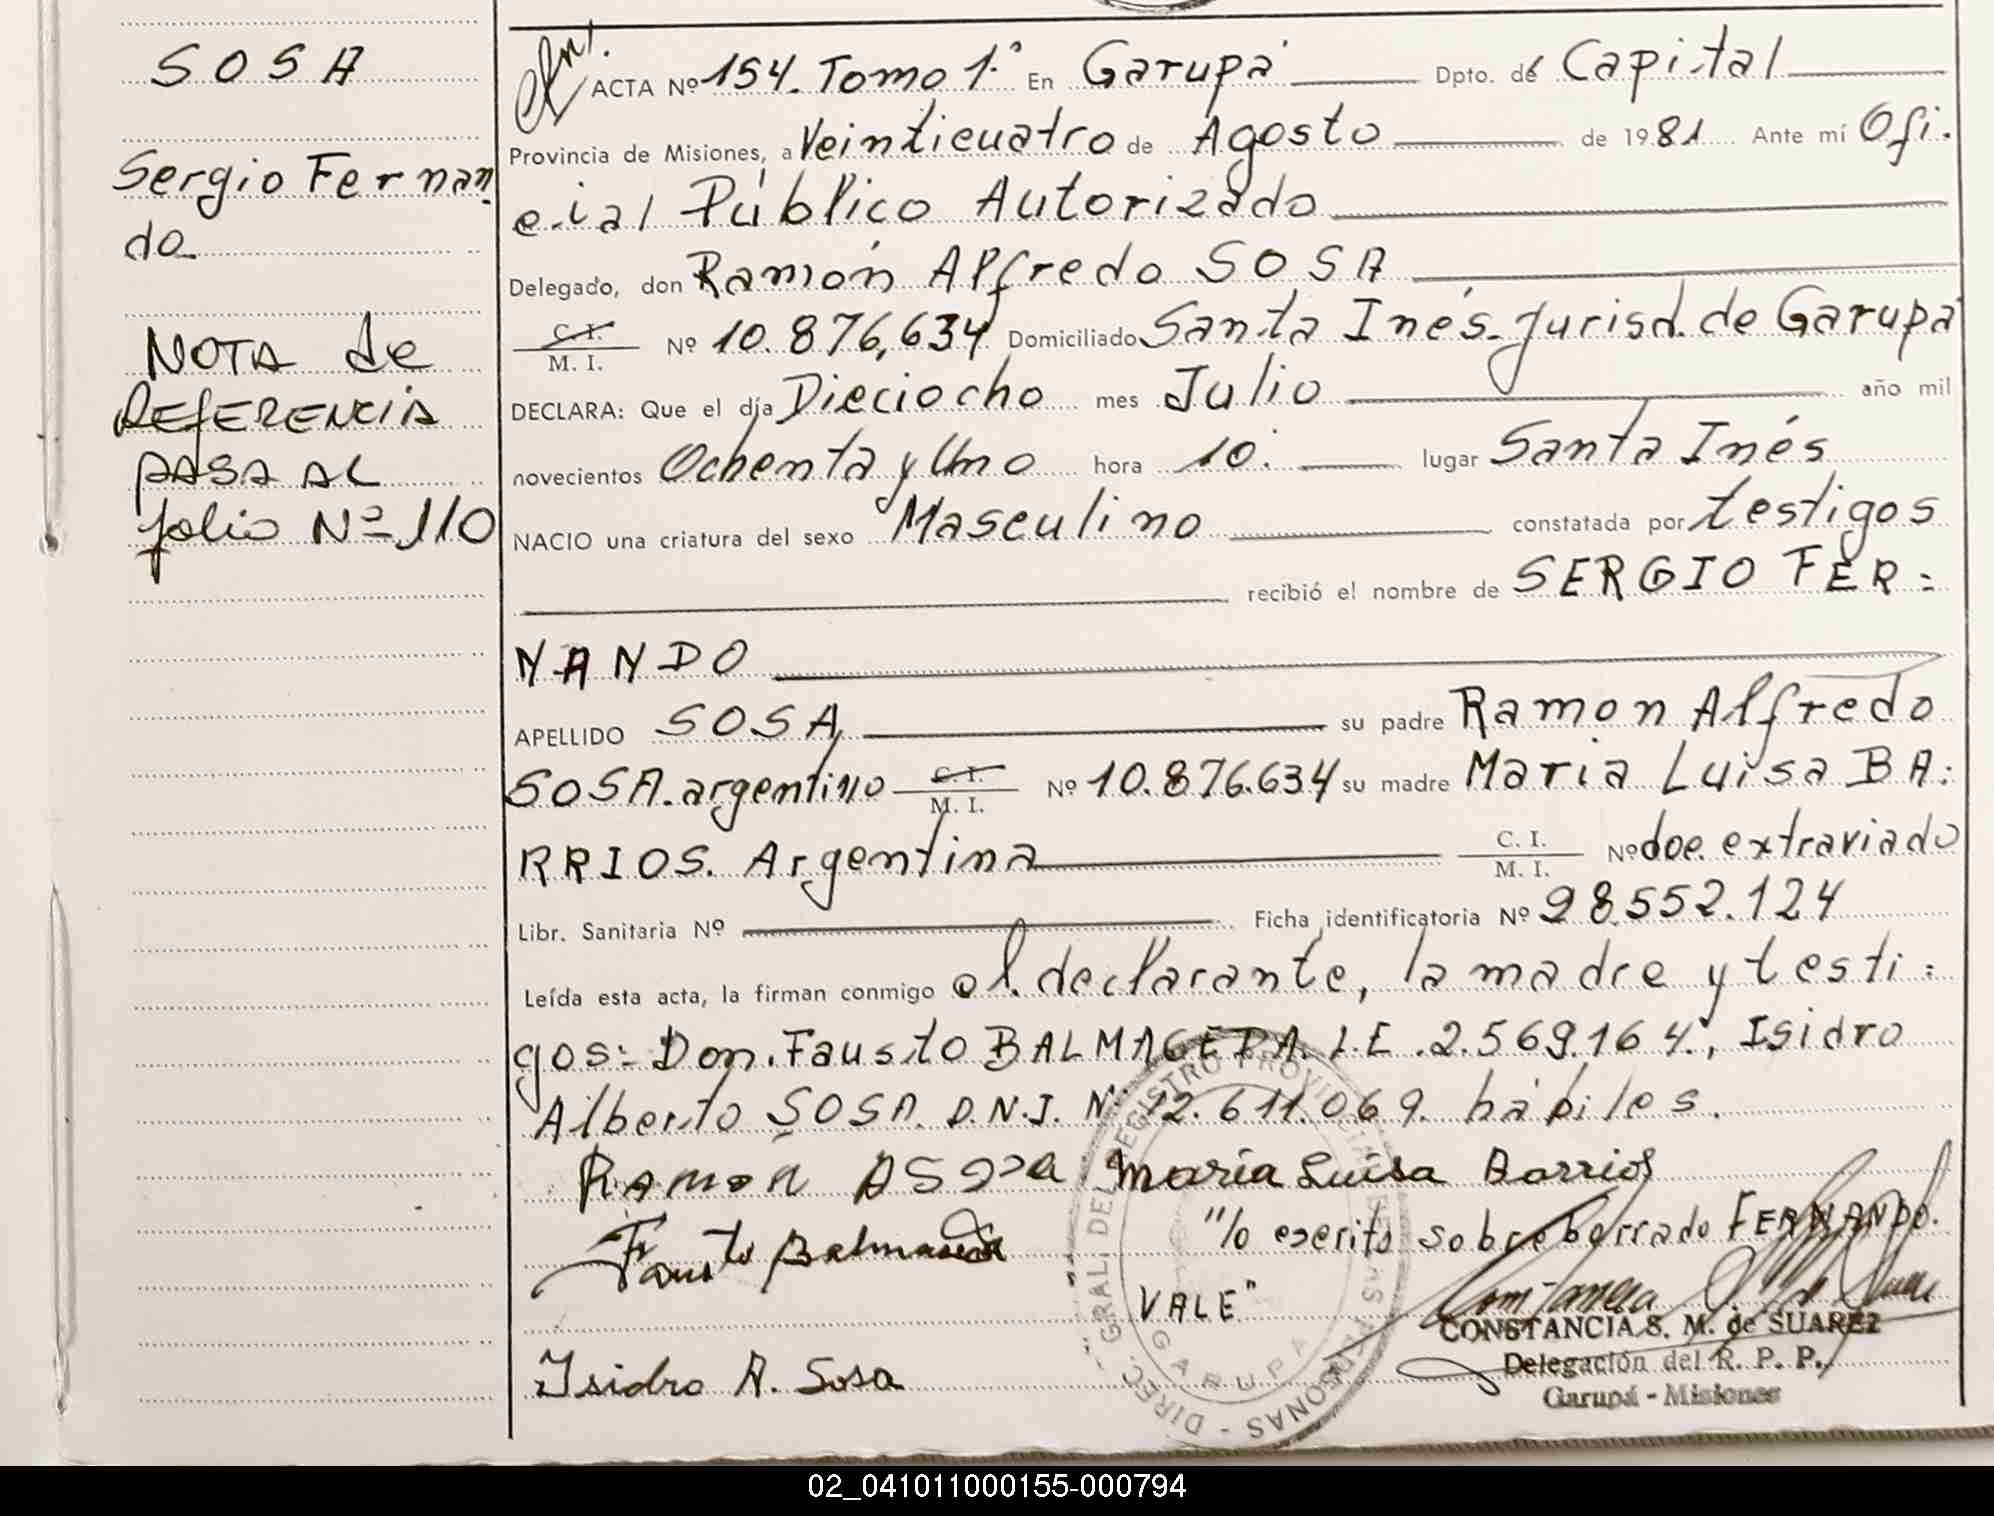 SOSA
Sergio Fernan
do
NOTA de
REFERENCIA
PASA AL
folio Nº 110
ACTA Nº 154. Tomo 1º En Garupá Dpto. de Capital
Provincia de Misiones, a Veinticuatro de Agosto de 1981 Ante mí Ofi.
cial Público Autorizado
Delegado, don Ramón Alfredo SOSA
C. I.
M. I. Nº 10.876,634 Domiciliado Santa Inés-Jurisd. de Garupá
DECLARA: Que el día Dieciocho mes Julio año mil
novecientos Ochenta y Uno hora 10. lugar Santa Inés
NACIO una criatura del sexo Masculino constatada por testigos
recibió el nombre de SERGIO FER=
NANDO
APELLIDO SOSA su padre Ramon Alfredo
SOSA. argentino C. I. M. I. Nº 10.876.634 su madre Maria Luisa BA:
RRIOS. Argentina C. I. M. I. Nº doc. extraviado
Libr. Sanitaria Nº Ficha identificatoria Nº 28.552.124
Leída esta acta, la firman conmigo el declarante, la madre y testi=
gos= Don. Fausto BALMACEDA. L.E. 2.569.164., Isidro
Alberto SOSA. D.N.I. Nº 12.611.069. hábiles.
Ramon A Sosa María Luisa Barrios
Fausto Balmaceda "lo escrito sobre borrado FERNANDO.
VALE"
CONSTANCIA S. M. de SUAREZ
Delegación del R. P. P.
Isidro A. Sosa
Garupá - Misiones
DIREC. GRAL. DEL REGISTRO PROVINCIAL DE LAS PERSONAS -
GARUPA
02_041011000155-000794